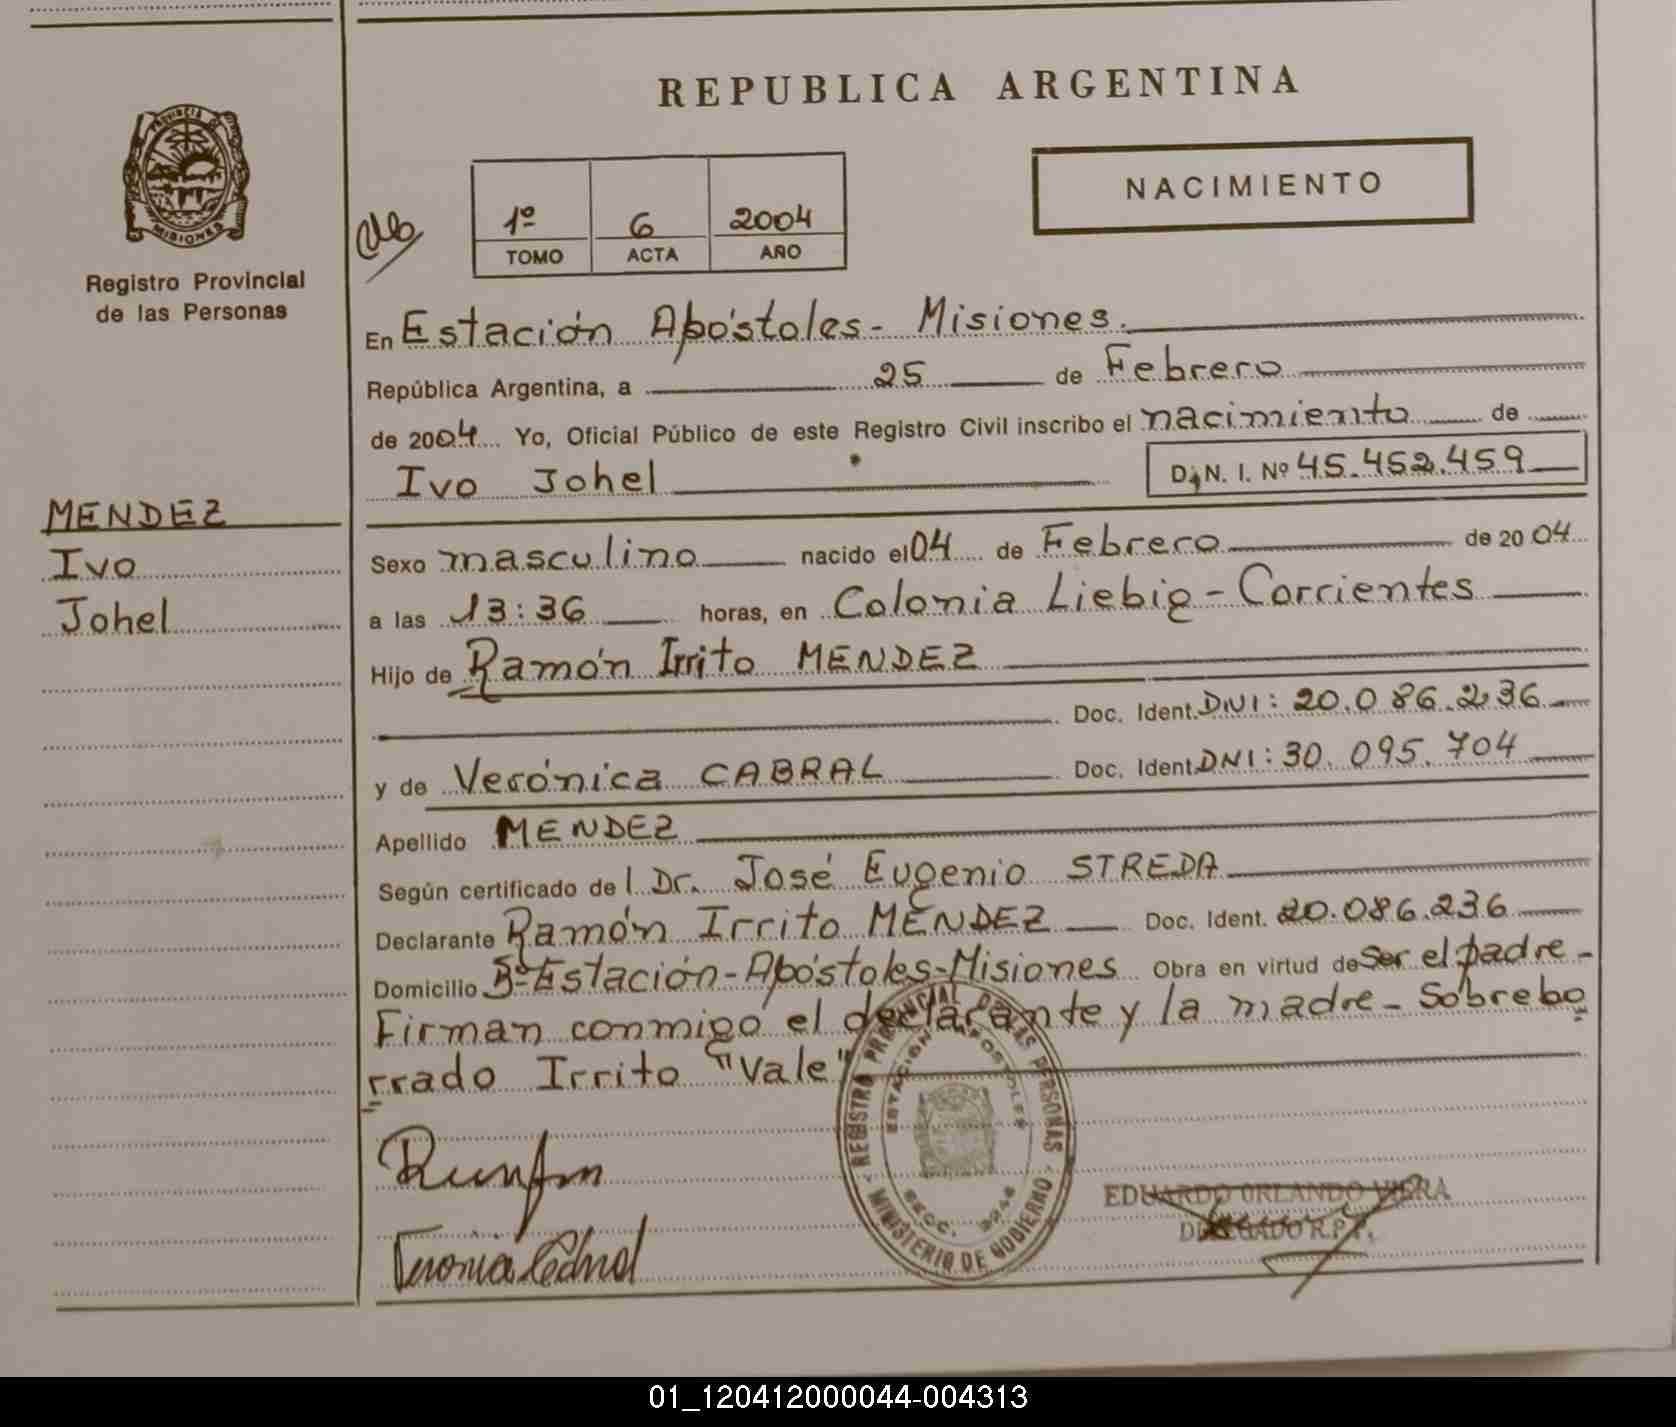 REPUBLICA ARGENTINA
NACIMIENTO
PROVINCIA D
MISIONES
Registro Provincial
de las Personas
1º 6 2004
TOMO ACTA AÑO
En Estación Apóstoles - Misiones.
República Argentina, a 25 de Febrero
de 2004 Yo, Oficial Público de este Registro Civil inscribo el nacimiento de
Ivo Johel D.N.I. Nº 45.452.459
MENDEZ
Ivo
Johel
Sexo masculino nacido el 04 de Febrero de 2004
a las 13:36 horas, en Colonia Liebig - Corrientes
Hijo de Ramón Irrito MENDEZ
Doc. Ident. DNI: 20.086.236
y de Verónica CABRAL Doc. Ident. DNI: 30.095.704
Apellido MENDEZ
Según certificado del Dr. José Eugenio STREDA
Declarante Ramón Irrito MENDEZ Doc. Ident. 20.086.236
Domicilio Bº Estación - Apóstoles - Misiones Obra en virtud de ser el padre -
Firman conmigo el declarante y la madre - Sobrebo
rrado Irrito "Vale"
REGISTRO PROVINCIAL DE LAS PERSONAS
ESTACION APOSTOLES
SECC.
MINISTERIO DE GOBIERNO
EDUARDO ORLANDO VIERA
DELEGADO R.P.P.
01_120412000044-004313